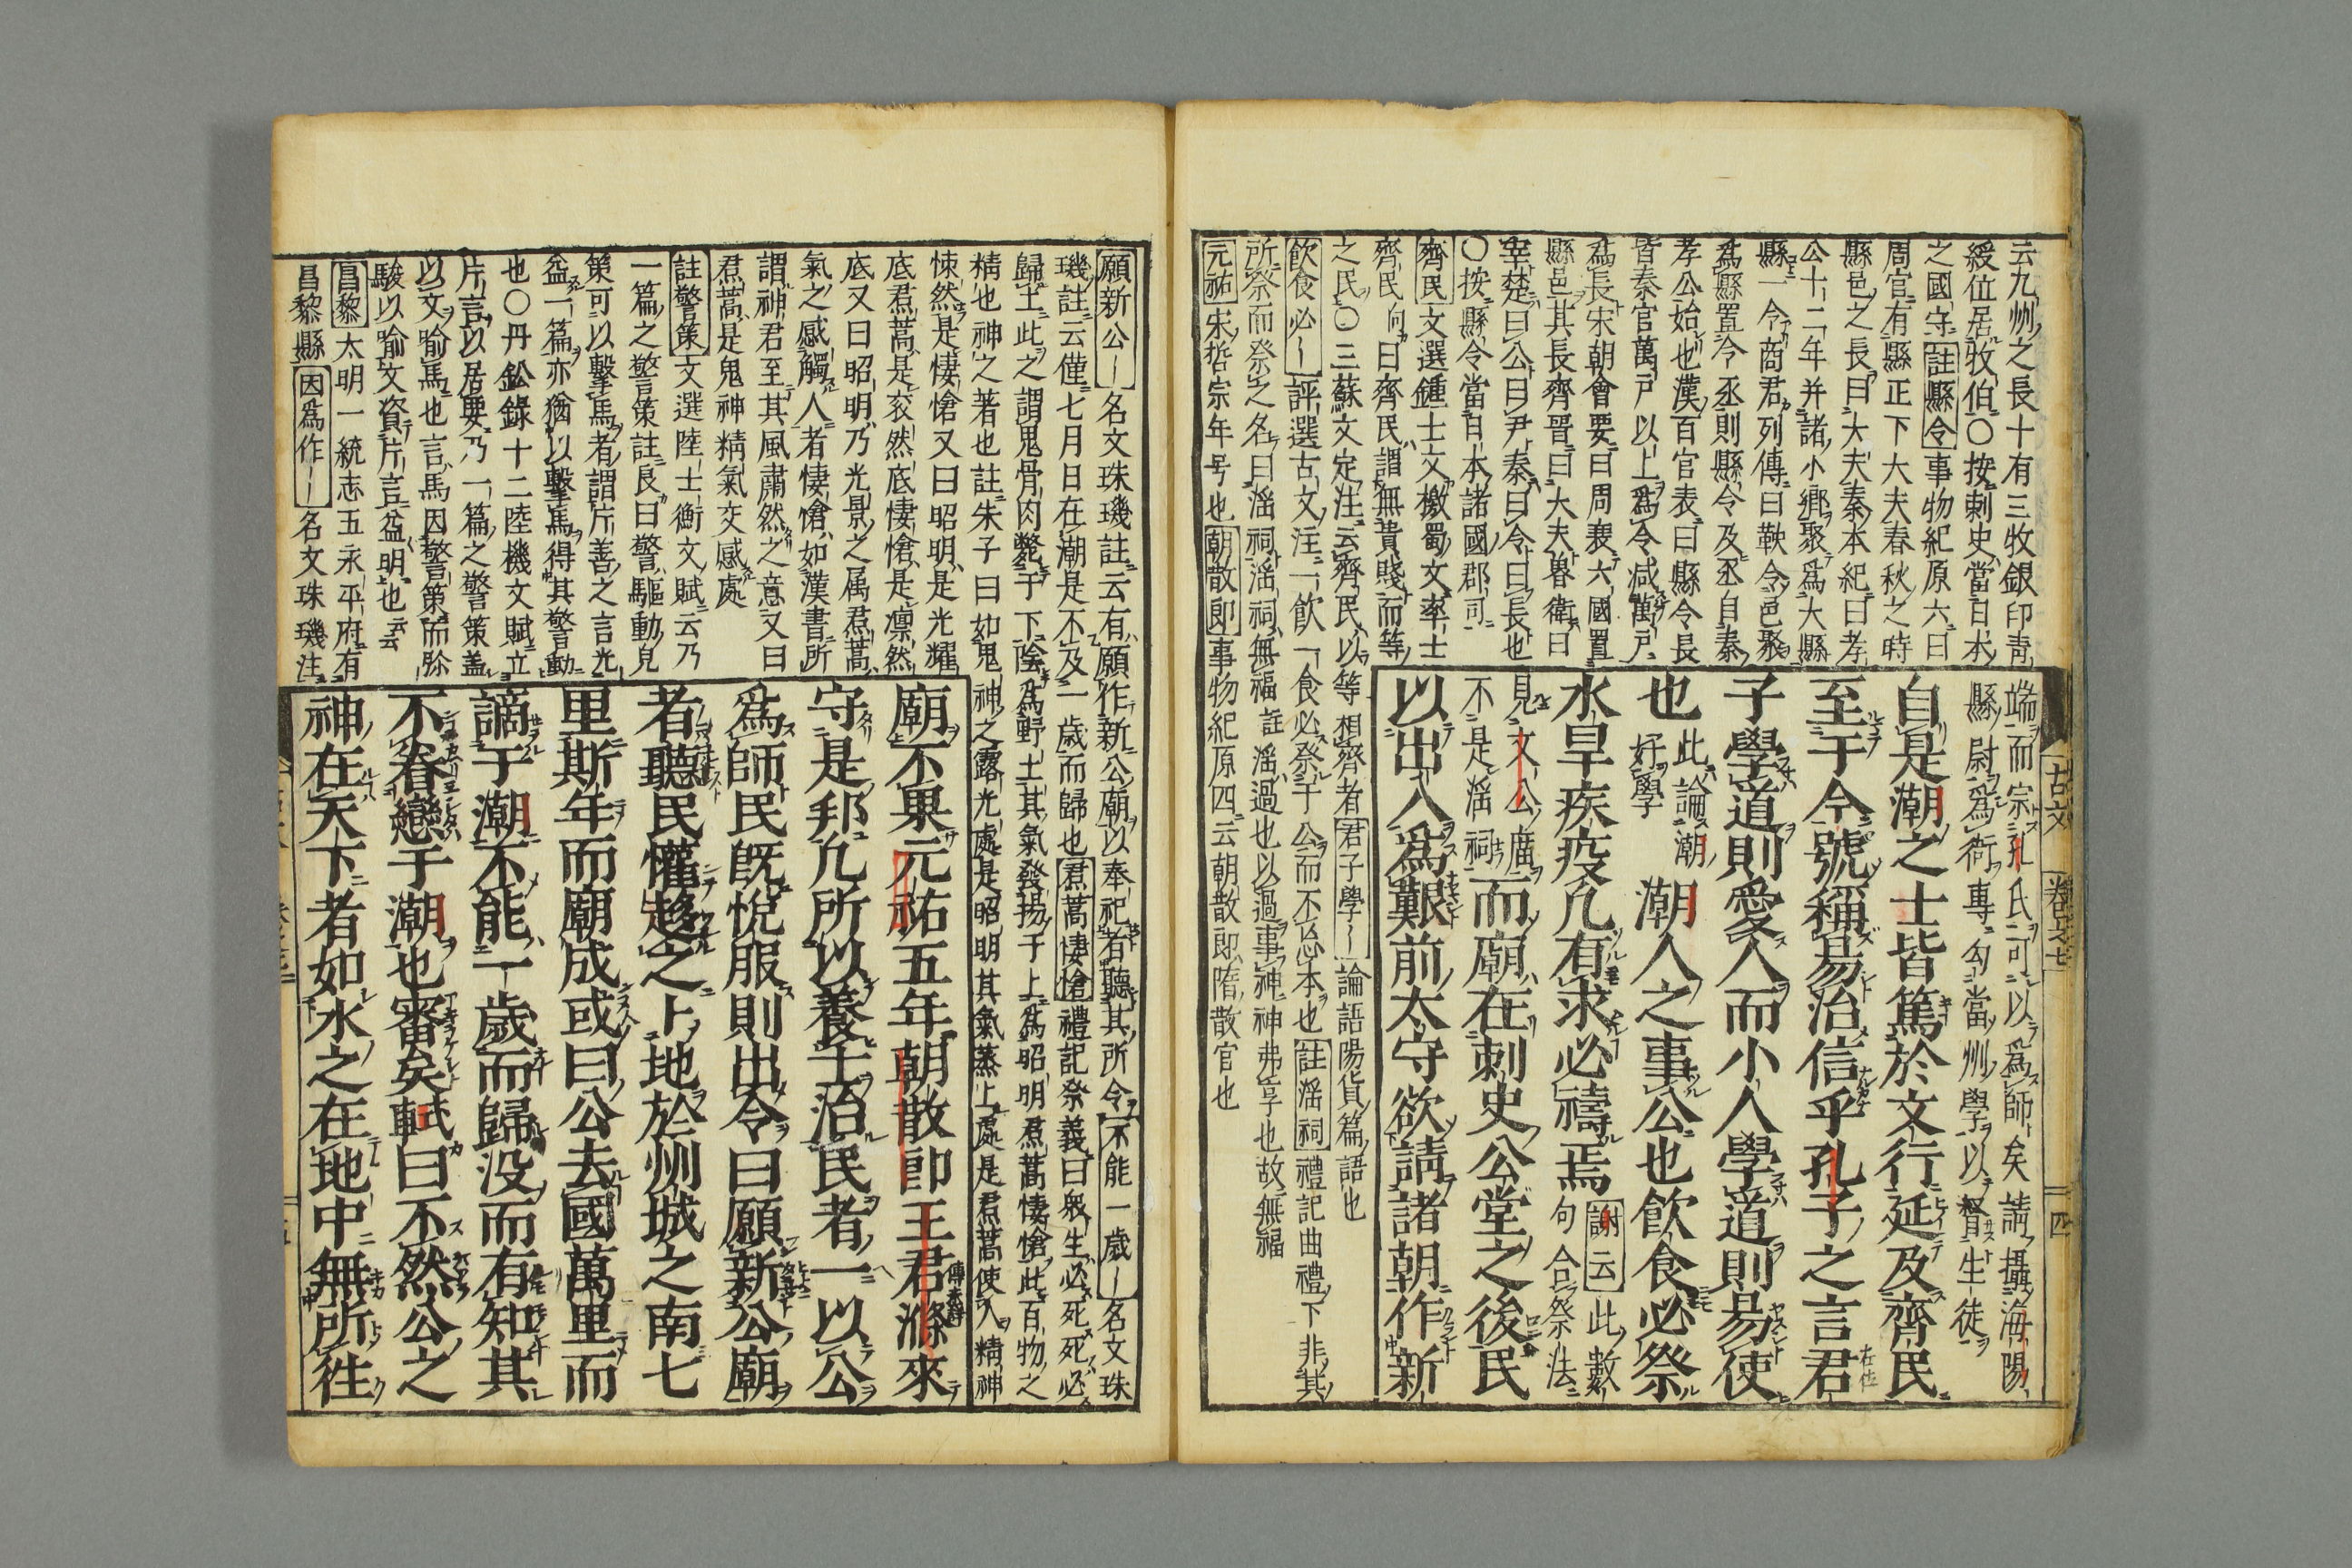 云九州之長十有三牧銀印青
綬位居牧伯〇按刺史當日本
之國守註縣令事物紀原六曰
周官有縣正下大夫春秋之時
縣邑之長曰大夫秦本紀曰孝
公十二年并諸小鄉聚爲大縣
縣一令商君列傳曰鞅令邑聚
爲縣置令丞則縣令及丞自秦
孝公始也漢百官表曰縣令長
皆秦官萬戸以上爲令减萬戸
爲長宋朝會要曰周衰六國置
縣邑其長齊晉曰大夫魯衛曰
宰楚曰公曰尹秦曰令曰長也
〇按縣令當日本諸國郡司
齊民文選鍾士文檄蜀文率士
齊民向曰齊民謂無貴賤而等
之民〇三蘇文定注云齊民以等相齊者君子學〡論語陽貨篇語也
飲食必〡評選古文注一飲一食必祭于公而不忘本也註滛祠禮記曲禮下非其
所祭而祭之名曰滛祠滛祠無福註滛過也以過事神神弗享也故無福
元祐宋哲宗年号也朝散郎事物紀原四云朝散郎隋散官也
端而宗孔氏可以爲師矣請攝海陽
縣尉爲衙專勾當州學以督生徒
自是潮之士皆篤於文行延及齊民
至于今號稱易治信乎孔子之言君
子學道則愛人而小人學道則易使
也此論潮好學潮人之事公也飲食必祭
水旱疾疫凢有求必禱焉謝云此數句合祭法
見文公廣不是滛祠而廟在刺史公堂之後民
以出入爲艱前太守欲請諸朝作新
古文
卷之七
四
願新公〡名文珠璣註云有願作新公廟以奉祀者聽其所令不能一歲〡名文珠
璣註云僅七月日在潮是不及一歲而歸也焄蒿悽愴禮記祭義曰衆生必死死必
歸土此之謂鬼骨肉斃于下陰爲野土其氣發揚于上爲昭明焄蒿悽愴此百物之
精也神之著也註朱子曰如鬼神之露光處是昭明其氣蒸上處是焄蒿使人精神
悚然是悽愴又曰昭明是光耀
底焄蒿是衮然底悽愴是凛然
底又曰昭明乃光景之属焄蒿
氣之感觸人者悽愴如漢書所
謂神君至其風肅然之意又曰
焄蒿是鬼神精氣交感處
註警策文選陸士衡文賦云乃
一篇之警策註良曰警驅動皃
策可以擊馬者謂片善之言光
益一篇亦猶以擊馬得其警動
也〇丹鈆錄十二陸機文賦立
片言以居要乃一篇之警策盖
以文喻馬也言馬因警策而弥
駿以喻文資片言益明也云云
昌黎太明一統志五永平府有
昌黎縣因爲作〡名文珠璣注
廟不果元祐五年朝散郎王君滌來
守是邦凢所以養士治民者一以公
爲師民旣悅服則出令曰願新公廟
者聽民懽趍之卜地於州城之南七
里斯年而廟成或曰公去國萬里而
謫于潮不能一歲而歸没而有知其
不眷戀于潮也審矣軾曰不然公之
神在天下者如水之在地中無所徃